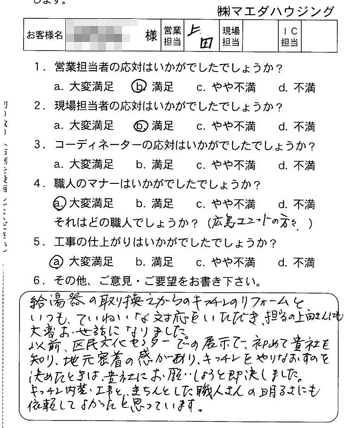 します。
㈱マエダハウジング
お客様名 様 営業担当 上田 現場担当 ＩＣ担当
1．営業担当者の応対はいかがでしたでしょうか？
a. 大変満足 b. 満足 c. やや不満 d. 不満
2．現場担当者の応対はいかがでしたでしょうか？
a. 大変満足 b. 満足 c. やや不満 d. 不満
3．コーディネーターの応対はいかがでしたでしょうか？
a. 大変満足 b. 満足 c. やや不満 d. 不満
4．職人のマナーはいかがでしたでしょうか？
a. 大変満足 b. 満足 c. やや不満 d. 不満
それはどの職人でしょうか？（広島ユニットの方々）
5．工事の仕上がりはいかがでしたでしょうか？
a. 大変満足 b. 満足 c. やや不満 d. 不満
6．その他、ご意見・ご要望をお書き下さい。
給湯器の取り換えからのキッチンのリフォームと、
いつも、ていねいな対応をいただき、担当の上田さんにも
大変お世話になりました。
以前、区民文化センターでの展示で、初めて貴社を
知り、地元密着の感があり、キッチンをやりなおすのを
決めたときは貴社にお願いしようと即決しました。
キッチン内装・工事と、きちんとした職人さんの明るさにも
依頼してよかったと思っています。